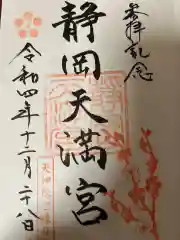 参拝記念
静岡天満宮
令和四年十二月二十八日